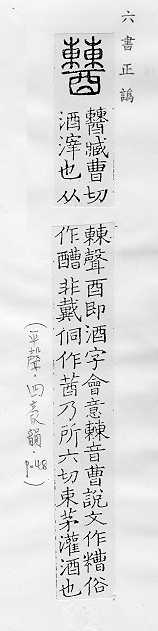 六書正譌
臧曹切
酒滓也从
㯥聲酉即酒字會意㯥音曹說文作糟俗
作醩非戴侗作莤乃所六切束茅灌酒也
(平聲．四豪韻．P.48)